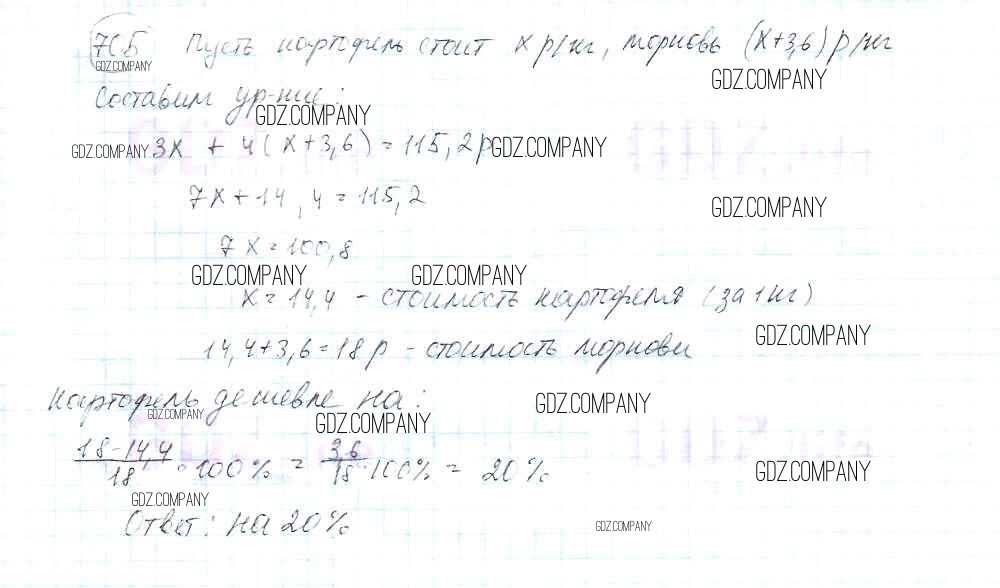 705 Пусть картофель стоит x р/кг, морковь (x+3,6) р/кг
GDZ.COMPANY
GDZ.COMPANY
Составим ур-ние:
GDZ.COMPANY
GDZ.COMPANY 3x + 4(x+3,6) = 115,2 р GDZ.COMPANY
7x + 14,4 = 115,2
GDZ.COMPANY
7x = 100,8
GDZ.COMPANY GDZ.COMPANY
x = 14,4 - стоимость картофеля (за 1 кг)
GDZ.COMPANY
14,4+3,6=18 р - стоимость моркови
Картофель дешевле на:
GDZ.COMPANY GDZ.COMPANY GDZ.COMPANY
18-14,4/18 · 100% = 3,6/18 · 100% = 20%
GDZ.COMPANY
GDZ.COMPANY
Ответ: на 20%
GDZ.COMPANY